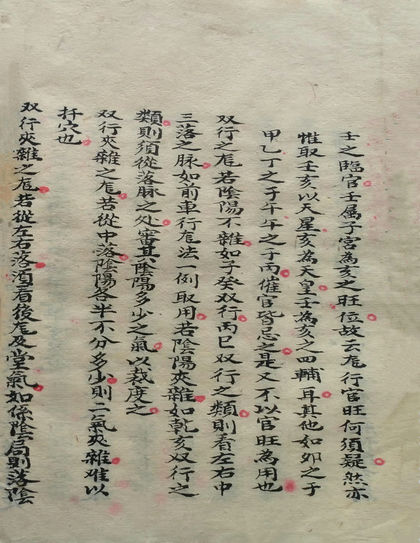 壬之臨官壬属子宮為亥之旺位故云龙行官旺何須疑然亦
惟取壬亥以天星亥為天皇壬為亥之四輔耳其他如卯之于
甲乙丁之于午午之于丙催官皆忌之是又不以官旺為用也
双行之龙若陰陽不雜如子癸双行丙巳双行之類則看左右中
三落之脉如前車行龙法一例取用若陰陽夾雜如乾亥双行之
類則須從落脉之处審其陰陽多少之氣以裁度之
双行夾雜之龙若從中落陰陽各半不分多少則二氣夾雜难以
扦穴也
双行夾雜之龙若從左右落濁看後龙及堂氣如係陰局則落陰